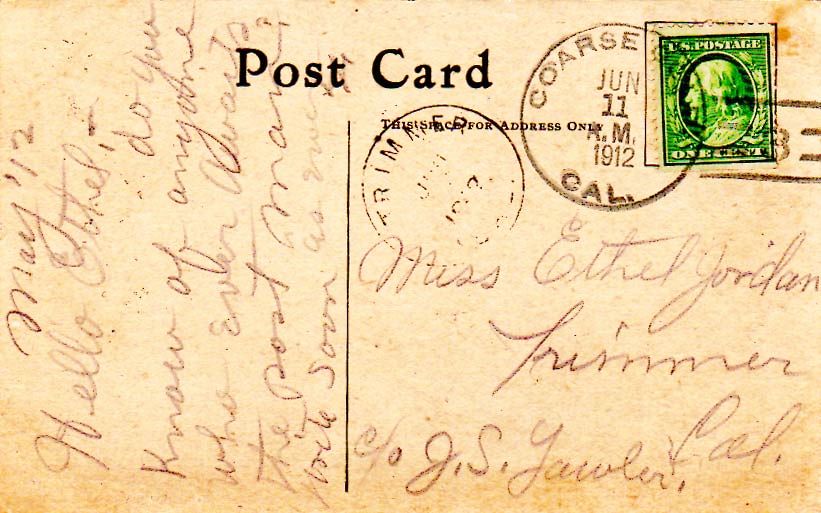 Post Card
THIS SPACE FOR ADDRESS ONLY
COARSE
JUN
11
A.M.
1912
CAL.
U.S. POSTAGE
ONE CENT
TRIMMER
May '12
Hello Ethel,-
do you
know of anyone
who ever
the post
write soon as
Miss Ethel Jordan
Trimmer
Cal.
c/o J. S.